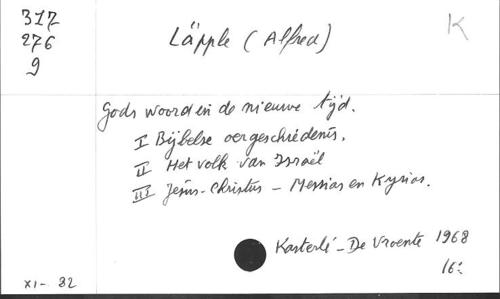 317
276
9
Läpple (Alfred)
K
Gods woord in de nieuwe tijd.
I Bijbelse oergeschiedenis.
II Het volk van Israël
III Jesus-Christus - Messias en Kyrios.
Kasterlé - De Vroente 1968
16:
XI- 82